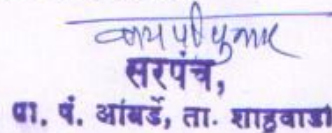 सरपंच,
ग्रा. पं. आंबर्डे, ता. शाहुवाडी